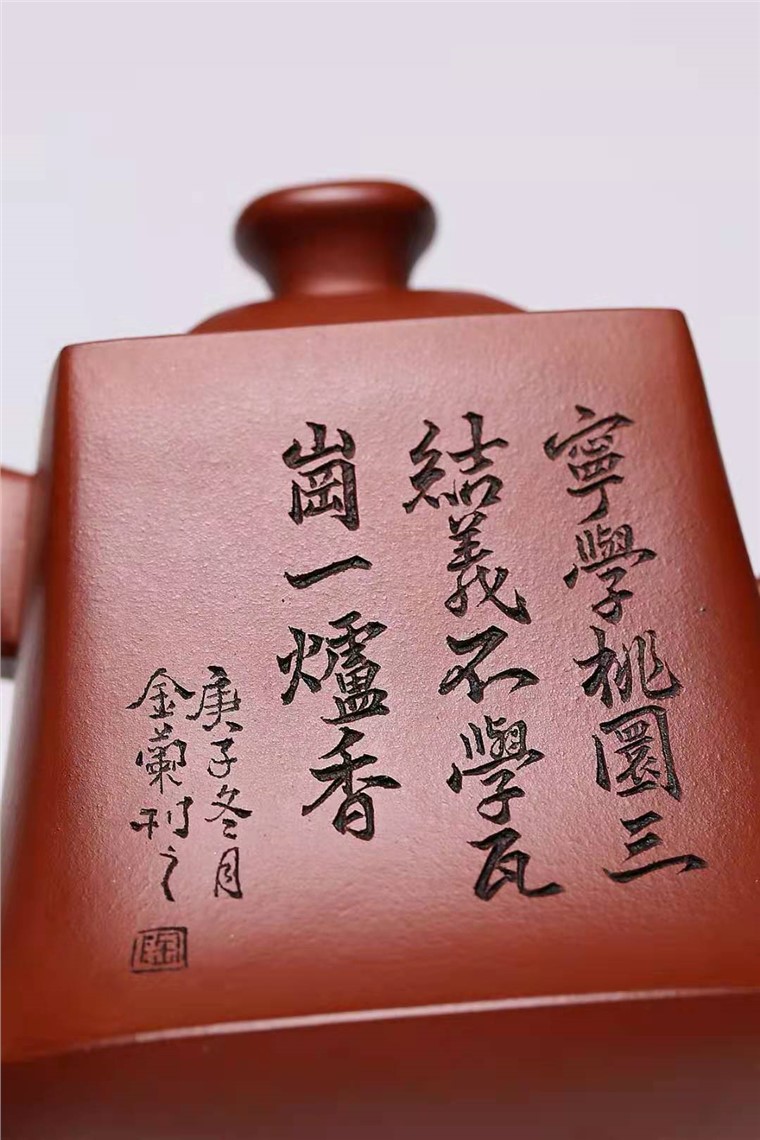 寧學桃園三
結義不學瓦
崗一爐香
庚子冬月
金蘭刊之
陶